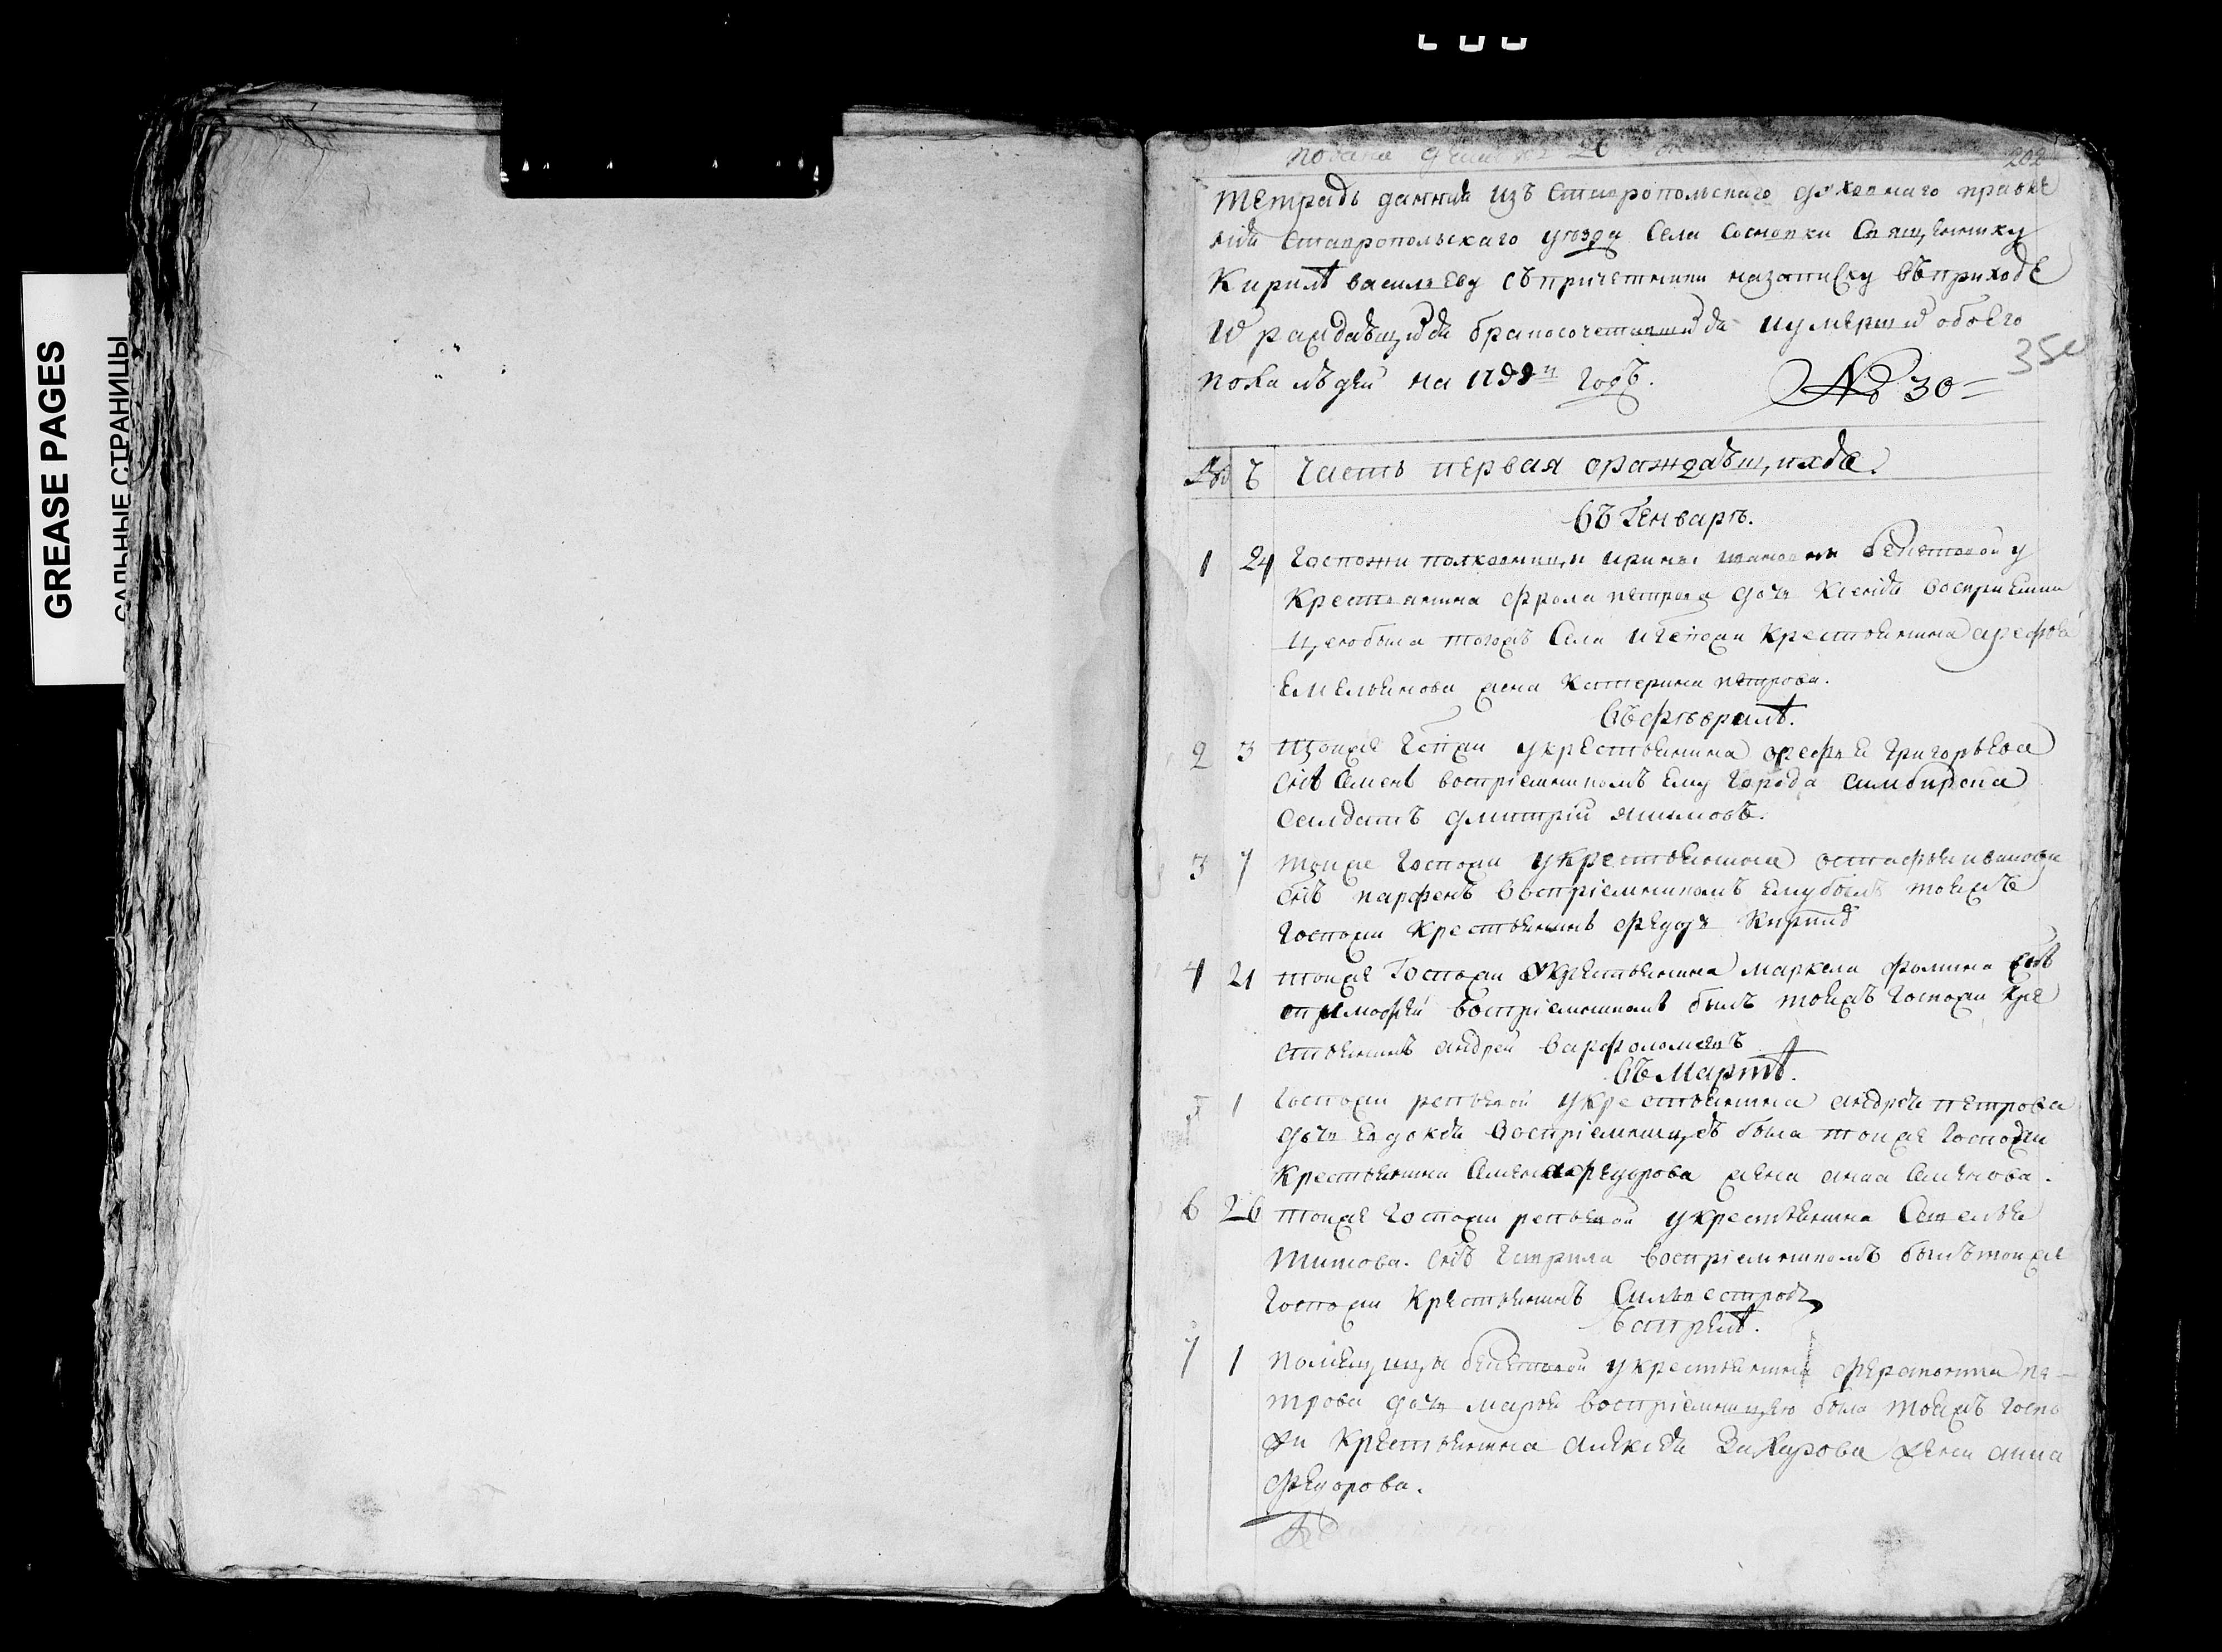 GREASE PAGES
САЛЬНЫЕ СТРАНИЦЫ
подана
202
тетрадь данная изъ Ставропольскаго духовнаго правле
нія Ставропольскаго уѣзда села Сосновки Священнику
Кирилѣ васильеву съпричетники назаписку въприходѣ
ѡ раждающихся бракосочетавшихся иумершихъ обоего
пола людей на 1788й годъ.
№ 30
350
№ Ч Часть первая ораждающихся.
Въ Генварѣ.
1 24 Госпожи полковницы ирины ивановны бекетовой у
Крестьянина фрола петрова дочь Ксенія восприемни
цею была тогожъ села игспожи крестьянина арефья
Емельянова жена Катерина петрова.
Въ февралѣ.
2 3 тояже гспжи укрестьянина арефья григорьева
снъ Семенъ воспріемникомъ ему города симбирска
салдатъ дмитрій якимовъ.
3 7 тояже госпожи укрестьянина остафья иванова
снъ парфенъ воспріемникомъ емубылъ тоежъ
госпожи крестьянинъ федоръ Кирил
4 21 тояже Госпожи укрестьянина маркела фомина снъ
тимофей воспріемникомъ былъ тоежъ госпожи кре
стьянинъ андрей варфоломеевъ
Въ Мартѣ.
5 1 Госпожи репьевой укрестьянина андрея петрова
дочь Евдокея воспріемницею была тояже госпожи
крестьянина Семена федорова жена анна семенова.
6 26 тояже госпожи репьевой укрестьянина Савелья
титова. снъ гаврила воспріемникомъ былъ тояже
госпожи крестьянинъ Силвестровъ
Въ апрелѣ.
7 1 помещицы бекетовой укрестьянина ферапонта пе-
трова дочь марья воспріемницею была тоежъ госпо
жи крестьянина алексея Захарова жена анна
федорова.